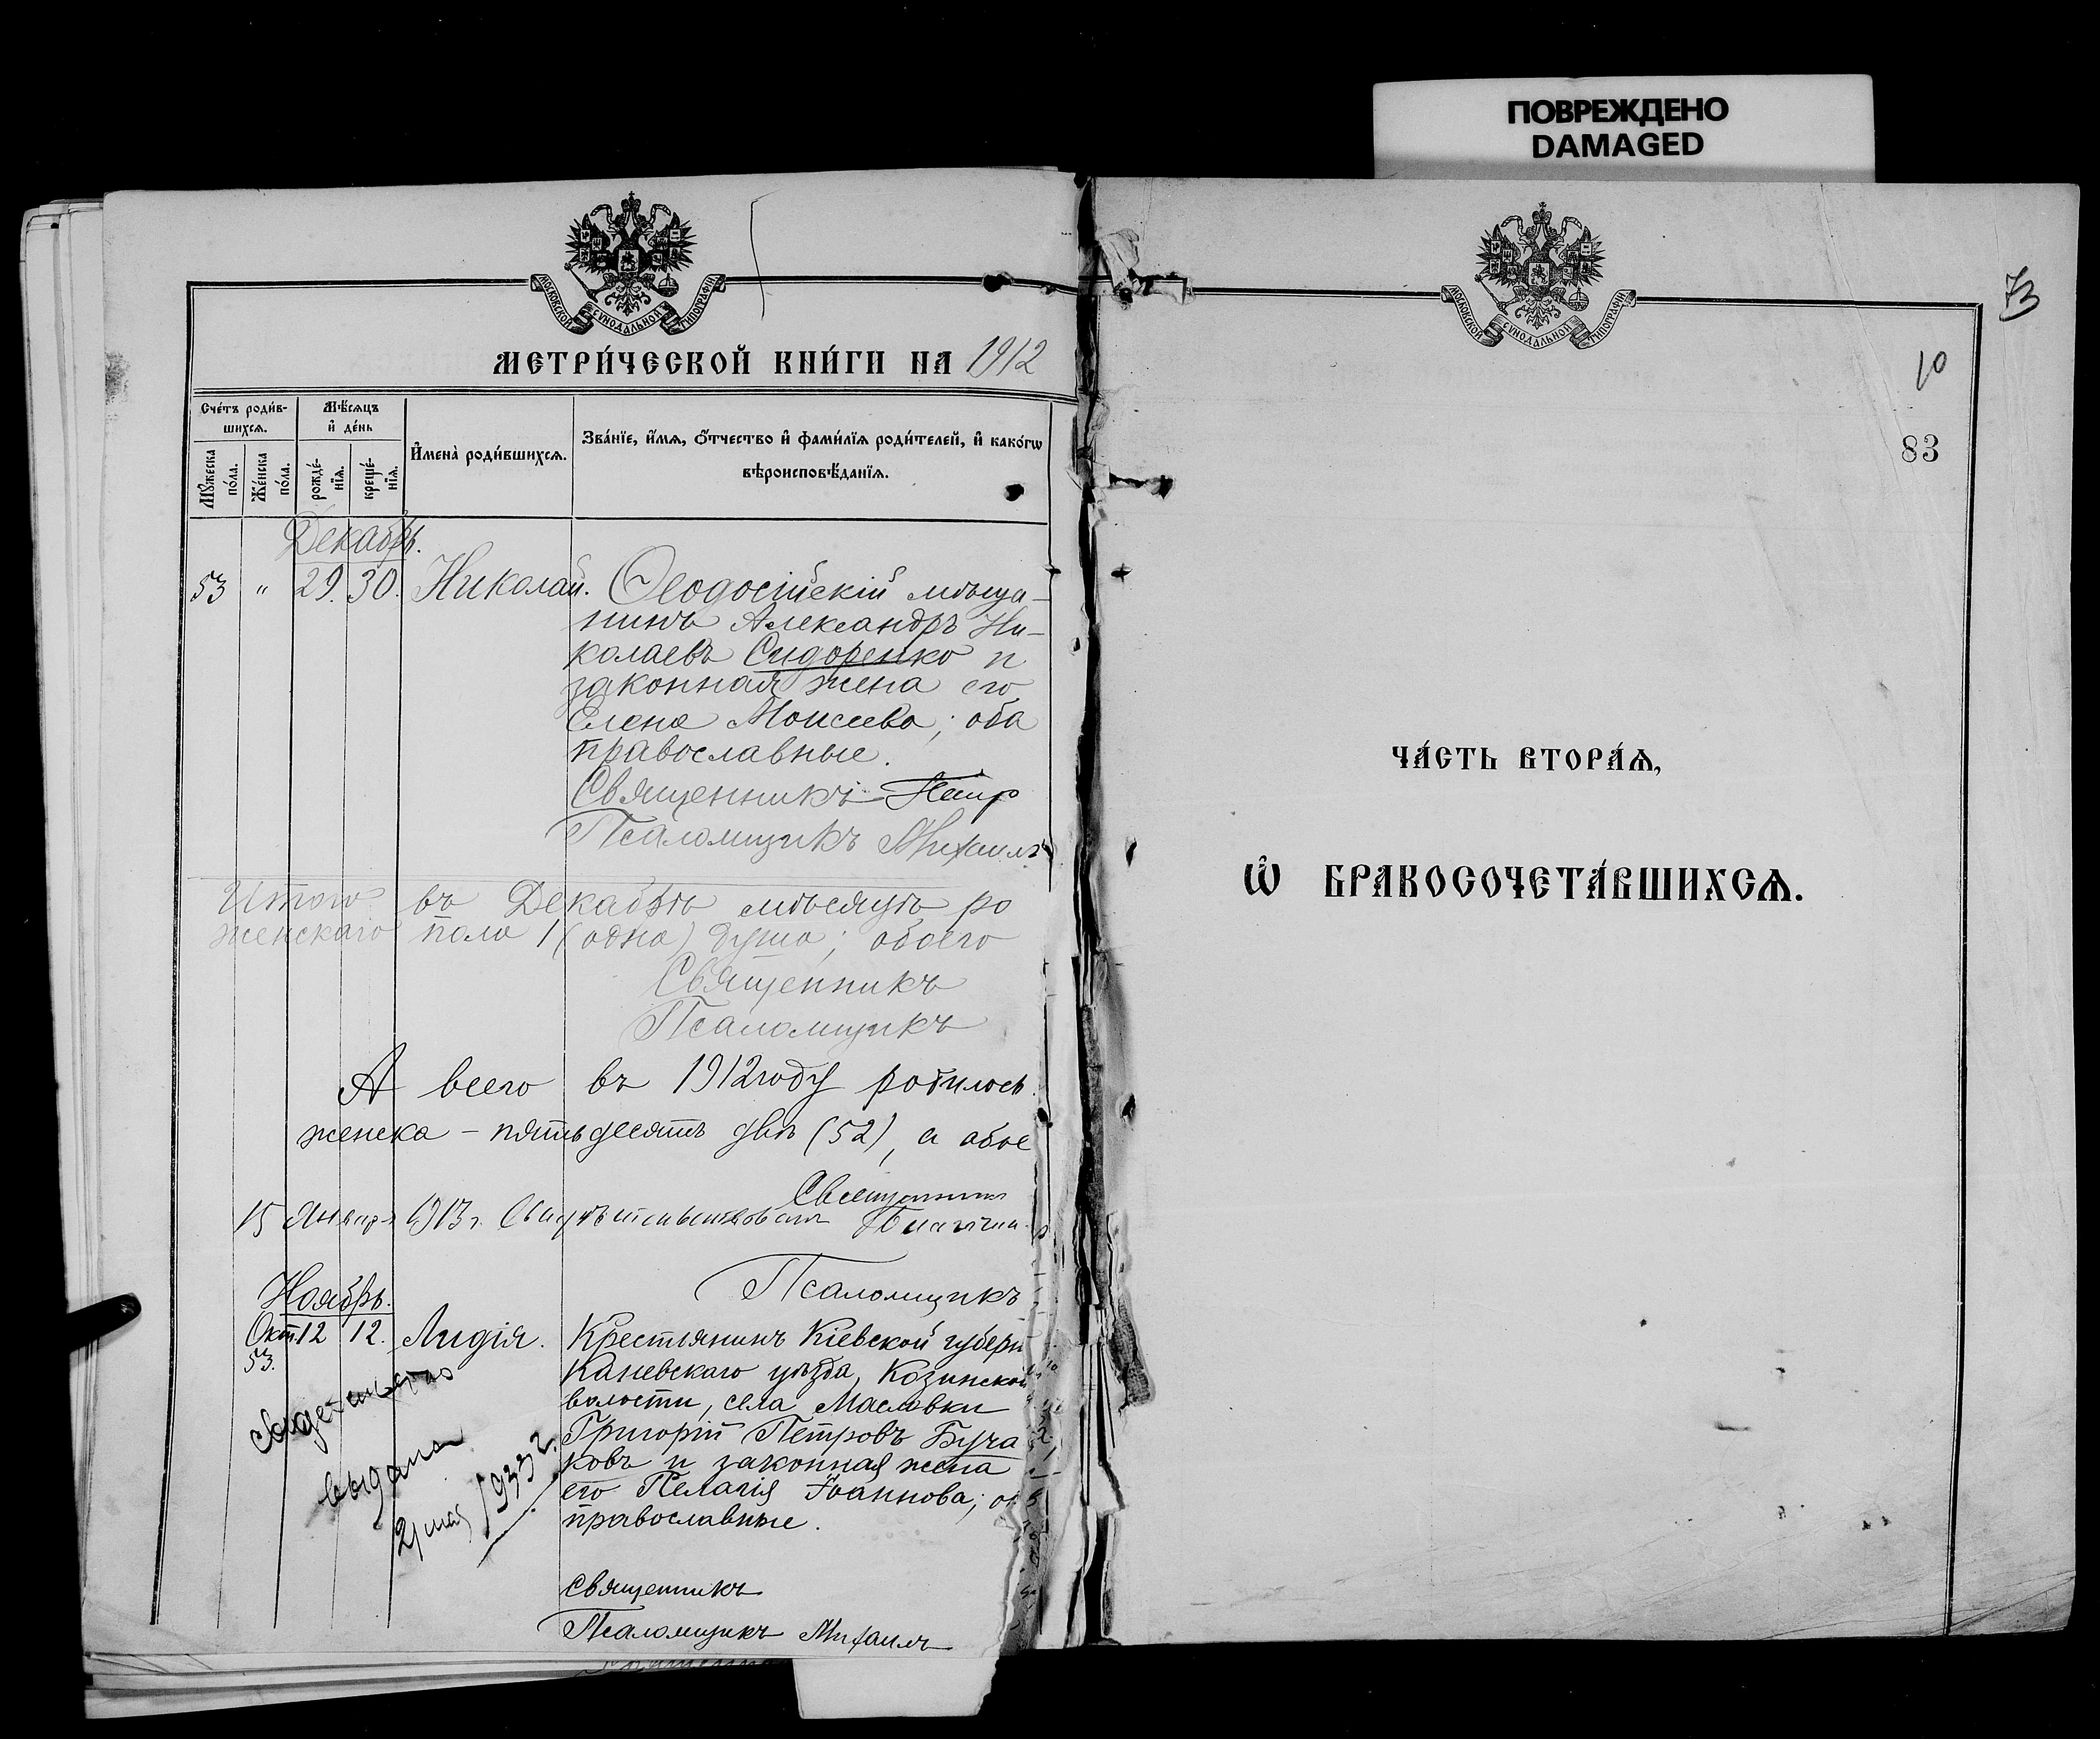 ПОВРЕЖДЕНО
DAMAGED
МОСКОВСКОЙ СУНОДАЛЬНОЙ ТИПОГРАФІИ
МЕТРИ́ЧЕСКОЙ КНИ́ГИ НА 1912
Сче́тъ роди́в-
шихсѧ.
Мѣ́сѧцъ
и҆ де́нь
Мꙋ́жеска
по́ла.
Же́нска
по́ла.
рожде́-
нїѧ.
креще́-
нїѧ.
И҆мена̀ роди́вшихсѧ.
Зва́нїе, и҆́мѧ, ѻ҆́тчество и҆ фами́лїѧ роди́телей, и҆ како́гѡ
вѣроисповѣ́данїѧ.
Декабрь.
53 " 29. 30. Николай. Ѳеодосійскій мѣща-
нинъ Александръ Ни-
колаевъ Сидоренко и
законная жена его
Елена Моисеева; оба
православные.
Священникъ Петр
Псаломщикъ Михаилъ
Итого въ Декабрѣ мѣсяцѣ ро
женскаго пола 1 (одна) душа; обоего
Священникъ
Псаломщикъ
А всего въ 1912 году родилось
женска - пятьдесятъ двѣ (52), а обое
Священникъ
15 Января 1913 г. Свидѣтельствовалъ
Псаломщикъ
Ноябрь.
Окт. 12 12. Лидія. Крестьянинъ Кіевской губерн
53.
Каневскаго уѣзда, Козинской
волости, села Масловки
Григорій Петровъ Буча
ковъ и законная жена
его Пелагія Іоаннова; о
православные.
Свидетельство
выдано
21 мая 1933 г.
Священникъ
Псаломщикъ Михаилъ
МОСКОВСКОЙ СУНОДАЛЬНОЙ ТИПОГРАФІИ
73
10
83
ЧА́СТЬ ВТОРА́Ѧ,
Ѡ҆ БРАКОСОЧЕТА́ВШИХСѦ.